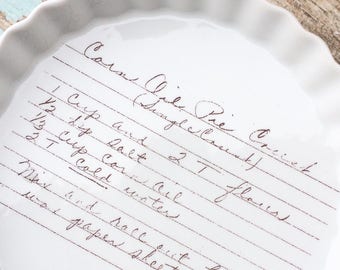 Corn Oil Pie Crust
(Single Crust)
1 Cup and 2 T flour
1/2 tsp salt
1/3 Cup Corn Oil
2 T cold water
Mix and roll out
wax paper